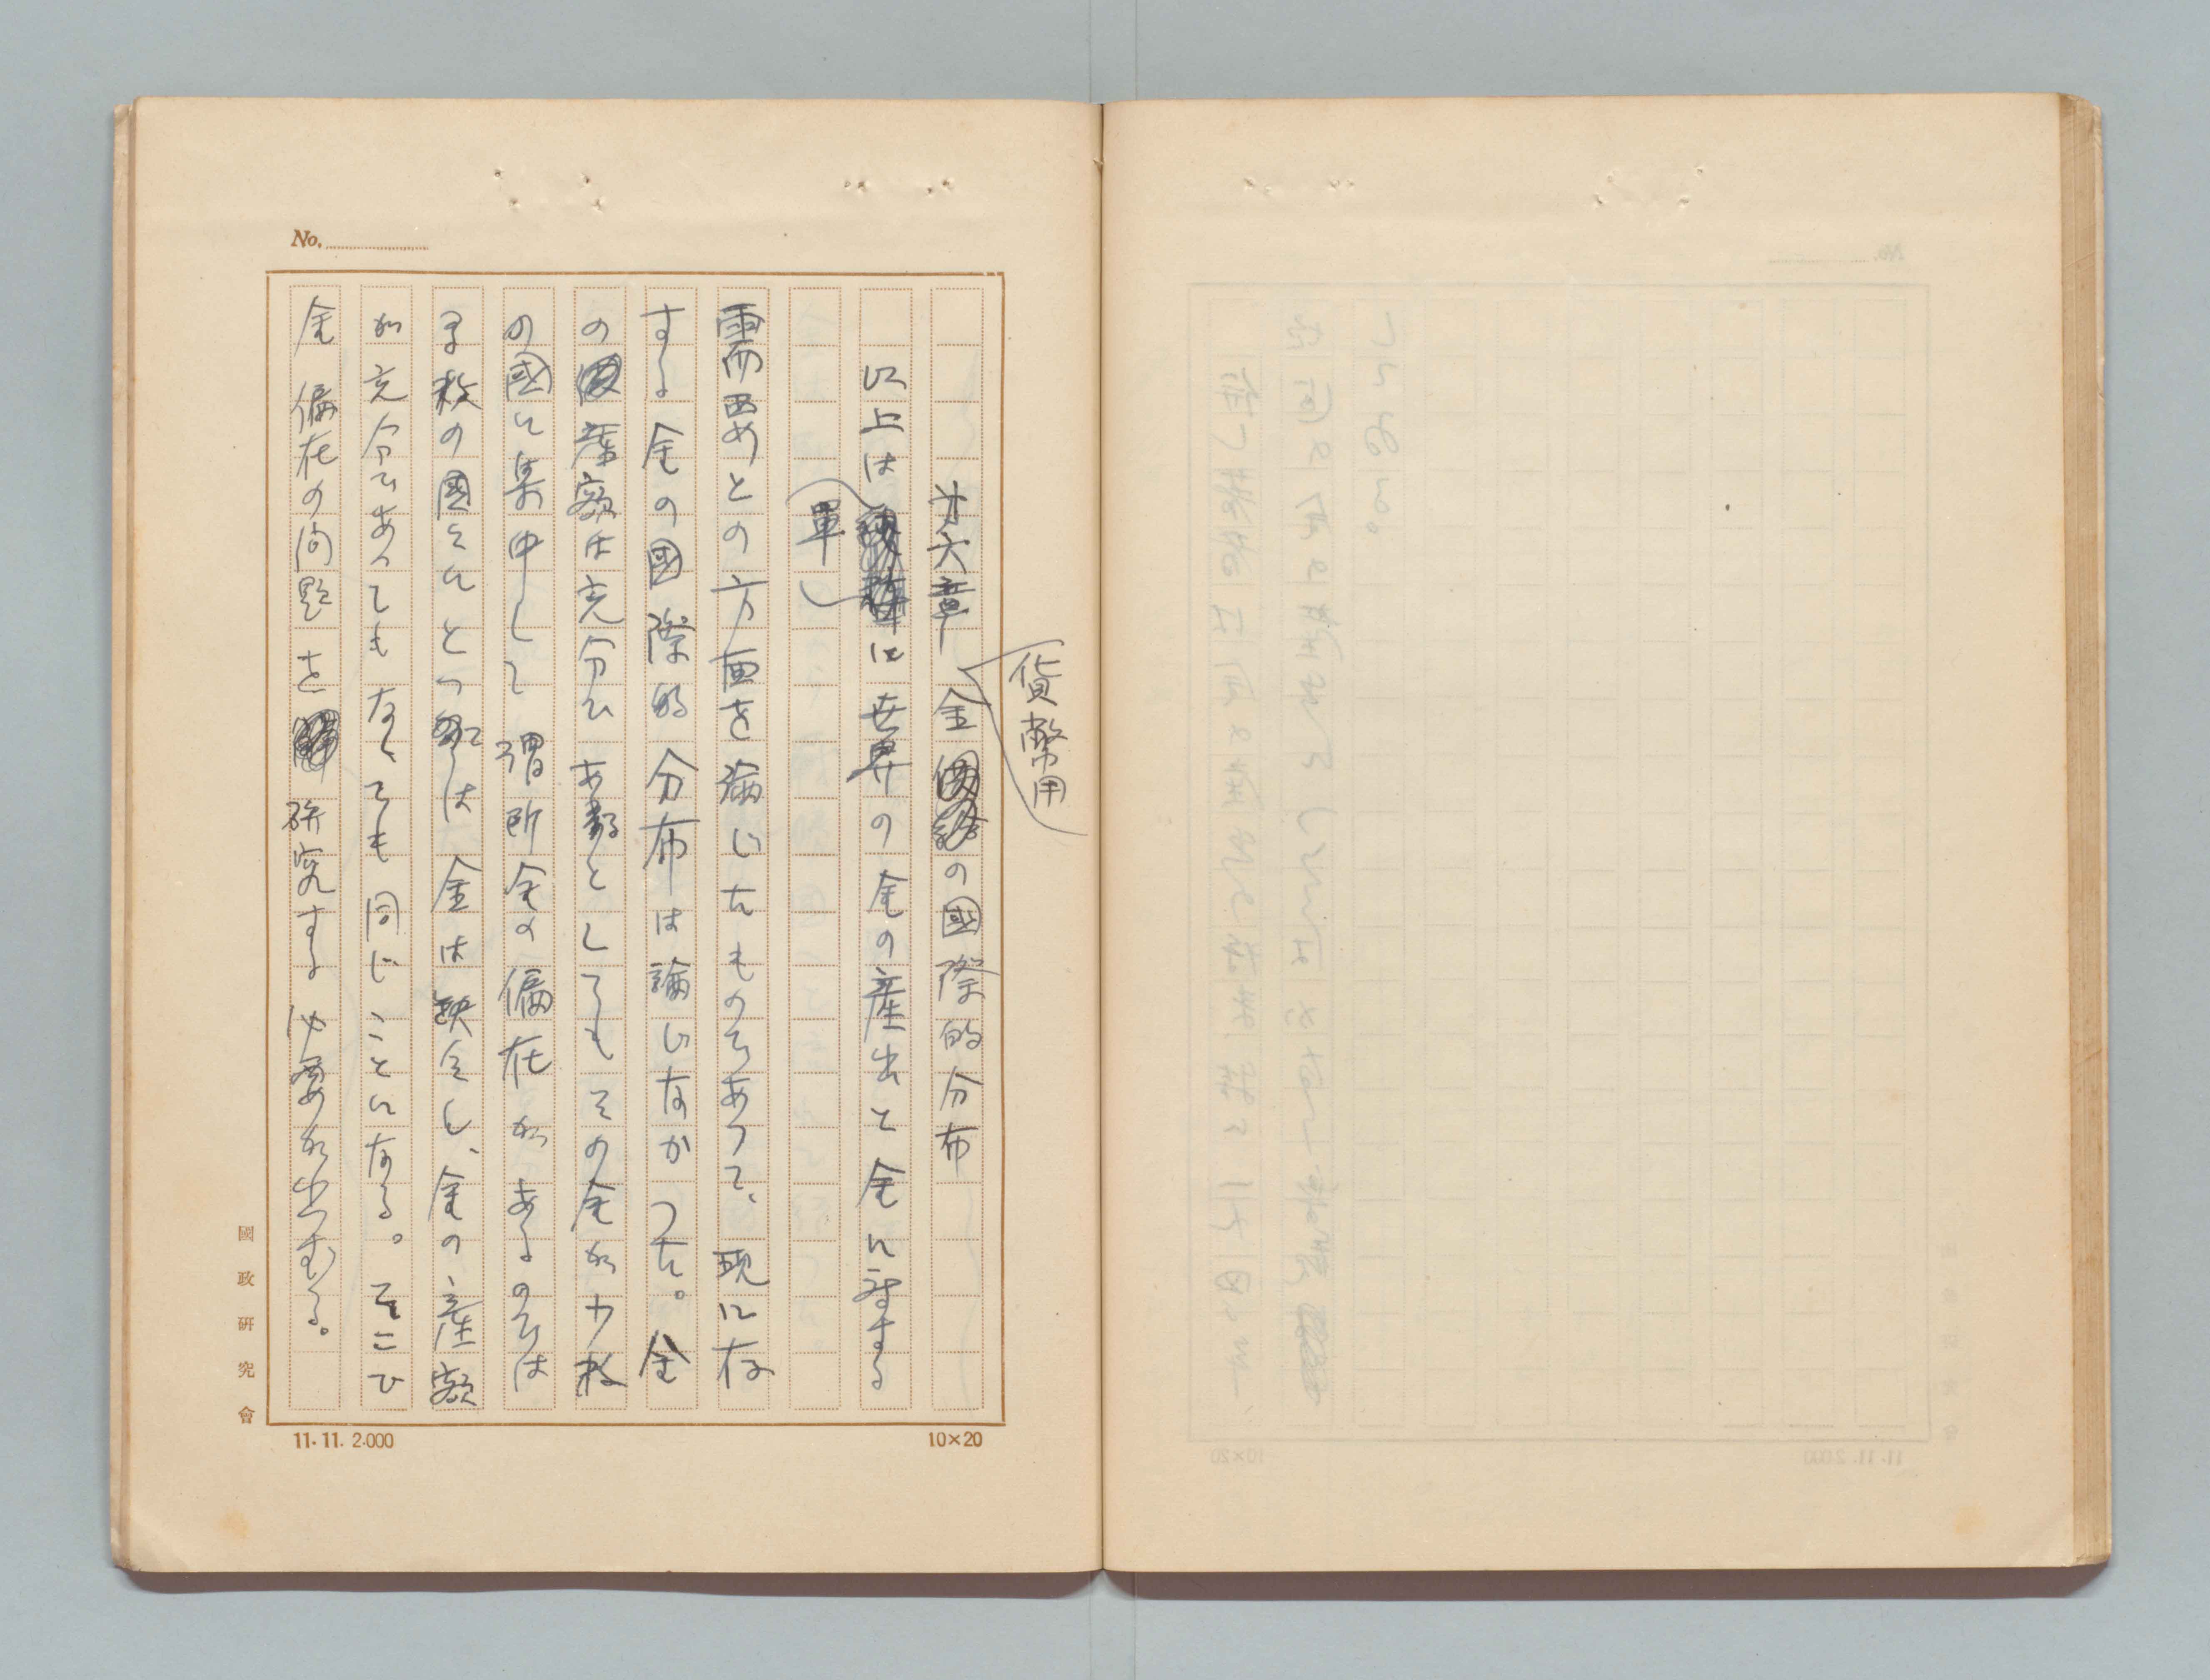 No.
貨幣用
第六章 金の國際的分布
以上は單に世界の金の産出と金に対する
需要との方面を論じたものであつて、現に存
する金の國際的分布は論じなかつた。金
の産額は充分であるとしてもその金が少数
の國に集中して謂所金の偏在があるのでは
多数の國々にとつては金は缺乏し、金の産額
が充分であつてもなくても同じことになる。そこで
金偏在の问題を研究する必要が出て來る。
國政研究會
11.11.2.000
10×20